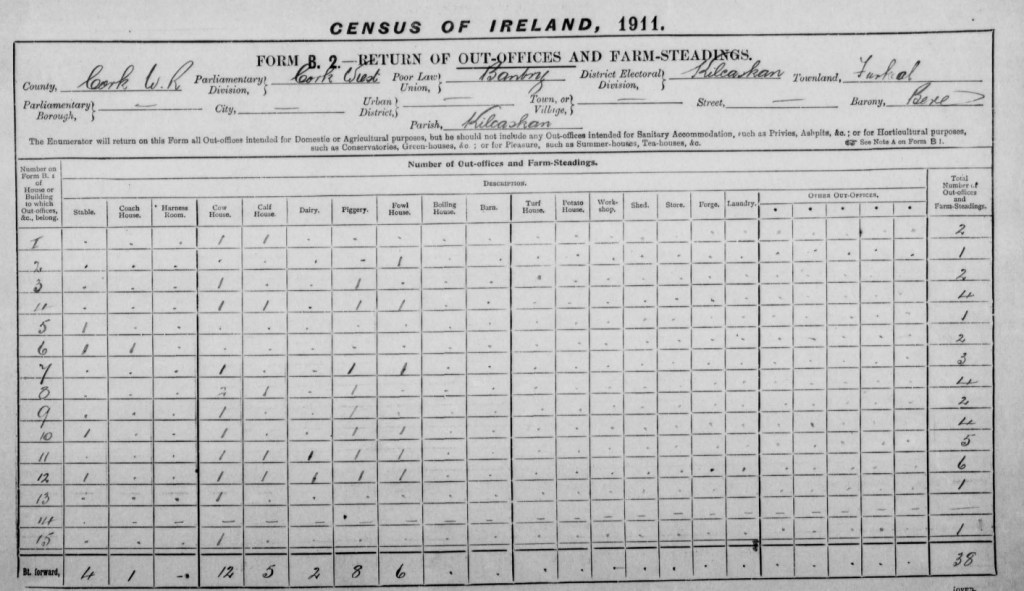 CENSUS OF IRELAND, 1911.
FORM B. 2.—RETURN OF OUT-OFFICES AND FARM-STEADINGS.
County, Cork W.R Parliamentary Division, Cork West Poor Law Union, Bantry District Electoral Division, Kilcaskan Townland,
Parliamentary Borough, — City, — Urban District, — Town, or Village, — Street, — Barony, Bere
Parish, Kilcaskan
The Enumerator will return on this Form all Out-offices intended for Domestic or Agricultural purposes, but he should not include any Out-offices intended for Sanitary Accommodation, such as Privies, Ashpits, &c.; or for Horticultural purposes,
such as Conservatories, Green-houses, &c; or for Pleasure, such as Summer-houses, Tea-houses, &c. ☞ See Note A on Form B 1.
Number on Form B. 1 of House or Building to which Out-offices, &c., belong.
Number of Out-offices and Farm-Steadings.
Description.
Total Number of Out-offices and Farm-Steadings.
Stable. Coach House. Harness Room. Cow House. Calf House. Dairy. Piggery. Fowl House. Boiling House. Barn. Turf House. Potato House. Work-shop. Shed. Store. Forge. Laundry. Other Out-Offices.
* * * * *
1 . . . 1 1 . . . . . . . . . . . . . . . . . 2
2 . . . . . . . 1 . . . . . . . . . . . . . . 1
3 . . . 1 . . 1 . . . . . . . . . . . . . . . 2
4 . . . 1 1 . 1 1 . . . . . . . . . . . . . . 4
5 1 . . . . . . . . . . . . . . . . . . . . . 1
6 1 1 . . . . . . . . . . . . . . . . . . . . 2
7 . . . 1 . . 1 1 . . . . . . . . . . . . . . 3
8 . . . 2 1 . 1 . . . . . . . . . . . . . . . 4
9 . . . 1 . . 1 . . . . . . . . . . . . . . . 2
10 1 . . 1 . . 1 1 . . . . . . . . . . . . . . 4
11 . . . 1 1 1 1 1 . . . . . . . . . . . . . . 5
12 1 . . 1 1 1 1 1 . . . . . . . . . . . . . . 6
13 . . . 1 . . . . . . . . . . . . . . . . . . 1
14 — — — — — — — — — — — — — — — — — — — — — — —
15 . . . 1 . . . . . . . . . . . . . . . . . . 1
Bt. forward, 4 1 - 12 5 2 8 6 . . . . . . . . . . . . . . 38